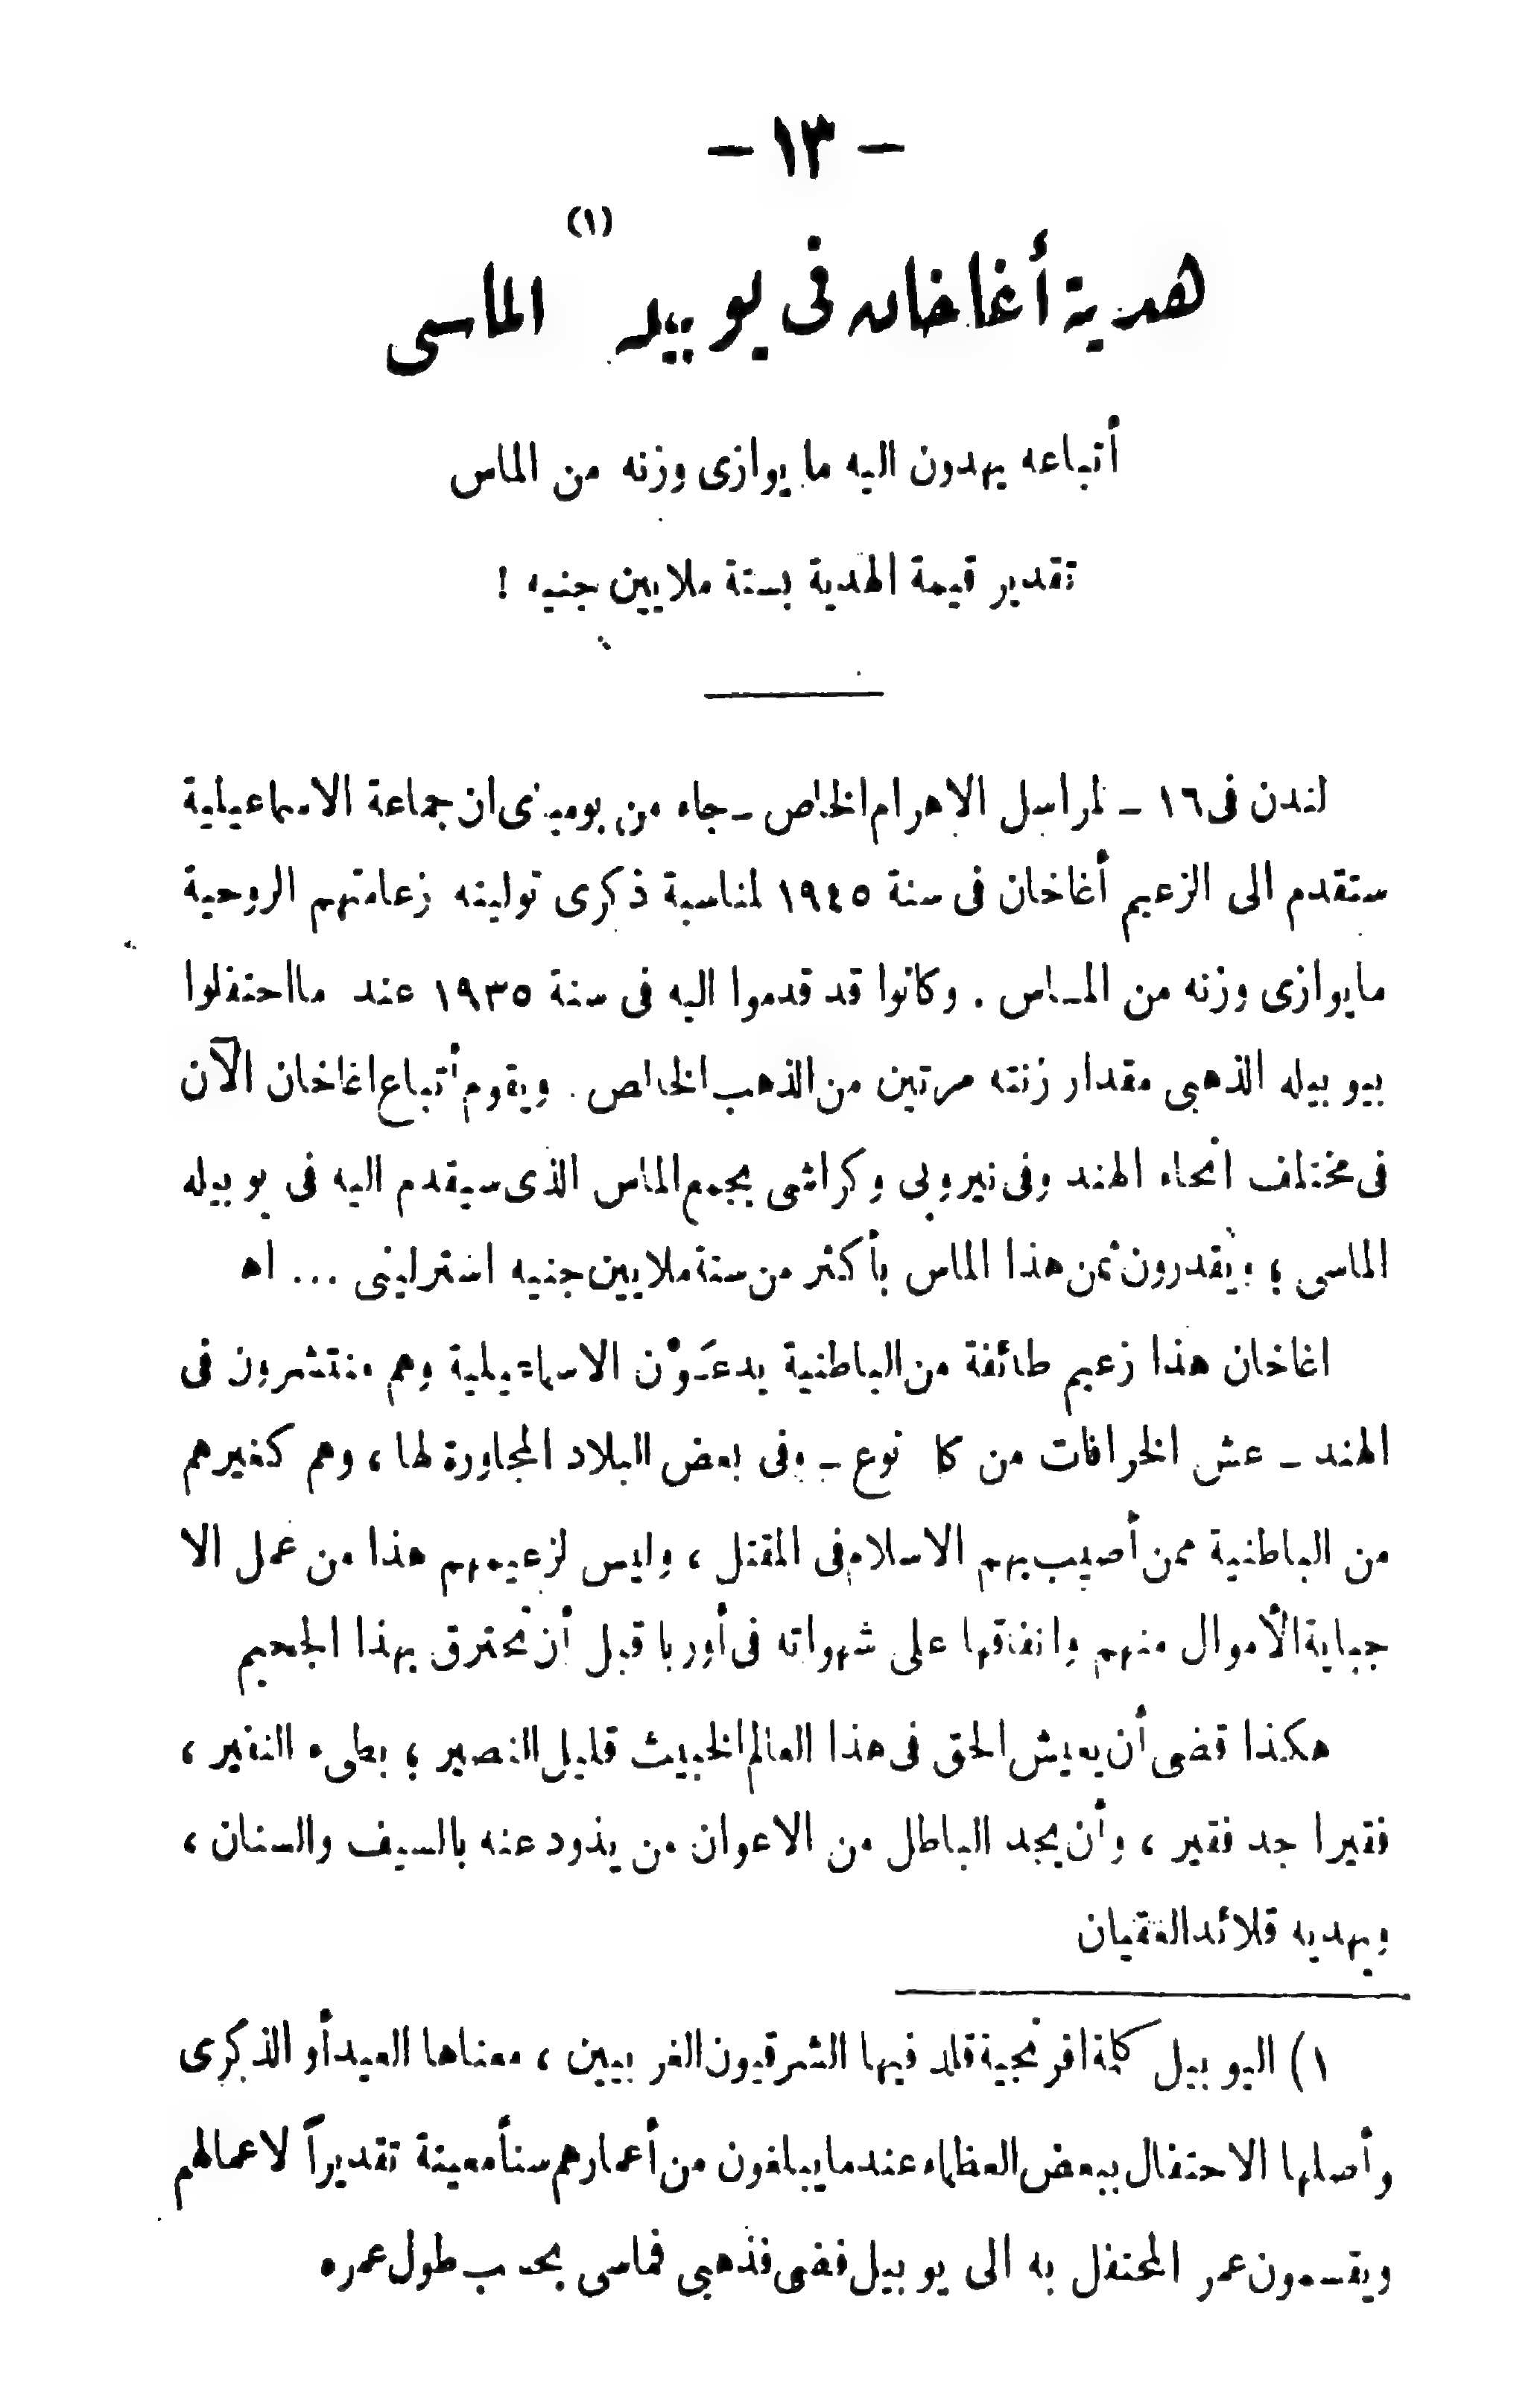 — ١٣ —
هدية أغاخان فى يوبيله (١) الماسى
أتباعه يهدون اليه ما يوازى وزنه من الماس
تقدير قيمة الهدية بستة ملايين جنيه !
لندن فى ١٦ ــ لمراسل الاهرام الخاص ــ جاء من بومباى ان جماعة الاسماعيلية
ستقدم الى الزعيم أغاخان فى سنة ١٩٤٥ لمناسبة ذكرى توليته زعامتهم الروحية
ما يوازى وزنه من المــاس . وكانوا قد قدموا اليه فى سنة ١٩٣٥ عند ما احتفلوا
بيوبيله الذهبى مقدار زنته مرتين من الذهب الخالص . ويقوم أتباع اغاخان الآن
فى مختلف انحاء الهند وفى نيروبى وكراتشى بجمع الماس الذى سيقدم اليه فى يوبيله
الماسى ؛ ويقدرون ثمن هذا الماس بأكثر من ستة ملايين جنيه استرلينى ... اه
اغاخان هذا زعيم طائفة من الباطنية يدعَوْن الاسماعيلية وهم منتشرون فى
الهند ــ عش الخرافات من كل نوع ــ وفى بعض البلاد المجاورة لها ، وهم كغيرهم
من الباطنية ممن أصيب بهم الاسلام فى المقتل ، وليس لزعيمهم هذا من عمل الا
جباية الأموال منهم وانفاقها على شهواته فى أوربا قبل أن تحترق بهذا الجحيم
هكذا قضى أن يعيش الحق فى هذا العالم الخبيث قليل النصير ؛ بطىء النفير ،
فقيرا جد فقير ، وأن يجد الباطل من الاعوان من يذود عنه بالسيف والسنان ،
ويهديه قلائد العقيان
١) اليوبيل كلمة افرنجية قلد فيها الشرقيون الغربيين ، معناها العيد أو الذكرى
وأصلها الاحتفال ببعض العظماء عندما يبلغون من أعمارهم سناً معينة تقديراً لاعمالهم
ويقسمون عمر المحتفل به الى يوبيل فضى فذهبى فماسى بحسب طول عمره